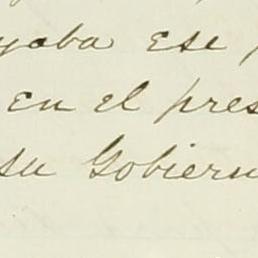 yaba ese p
en el pres
su Gobiern